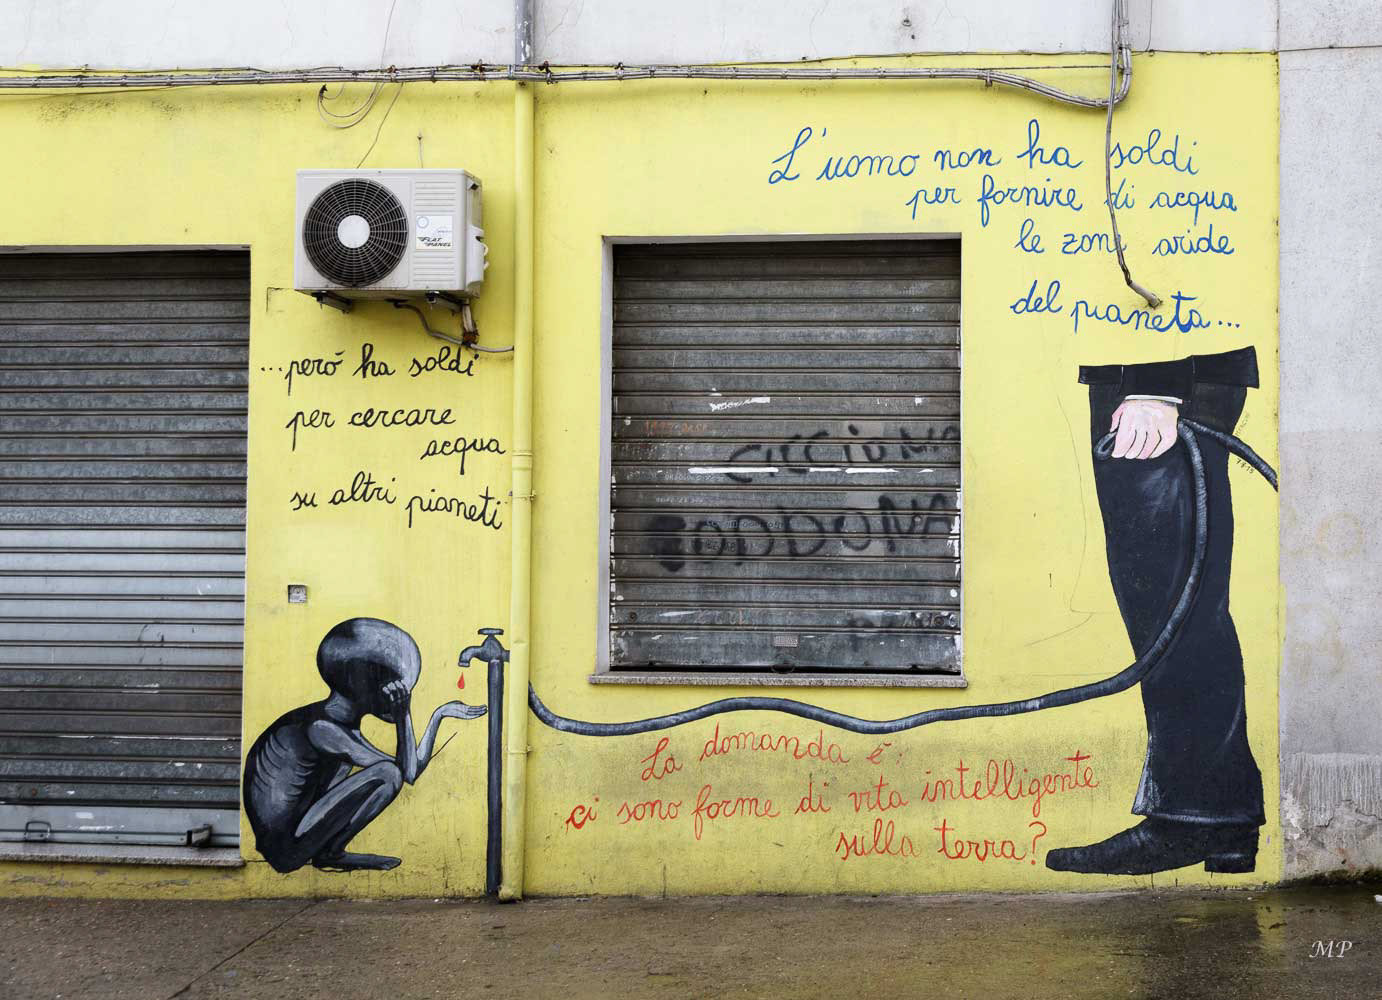 L'uomo non ha soldi
per fornire di acqua
le zone aride
del pianeta...
...però ha soldi
per cercare
acqua
su altri pianeti
La domanda è:
ci sono forme di vita intelligente
sulla terra?
FLAT
PANEL
MP